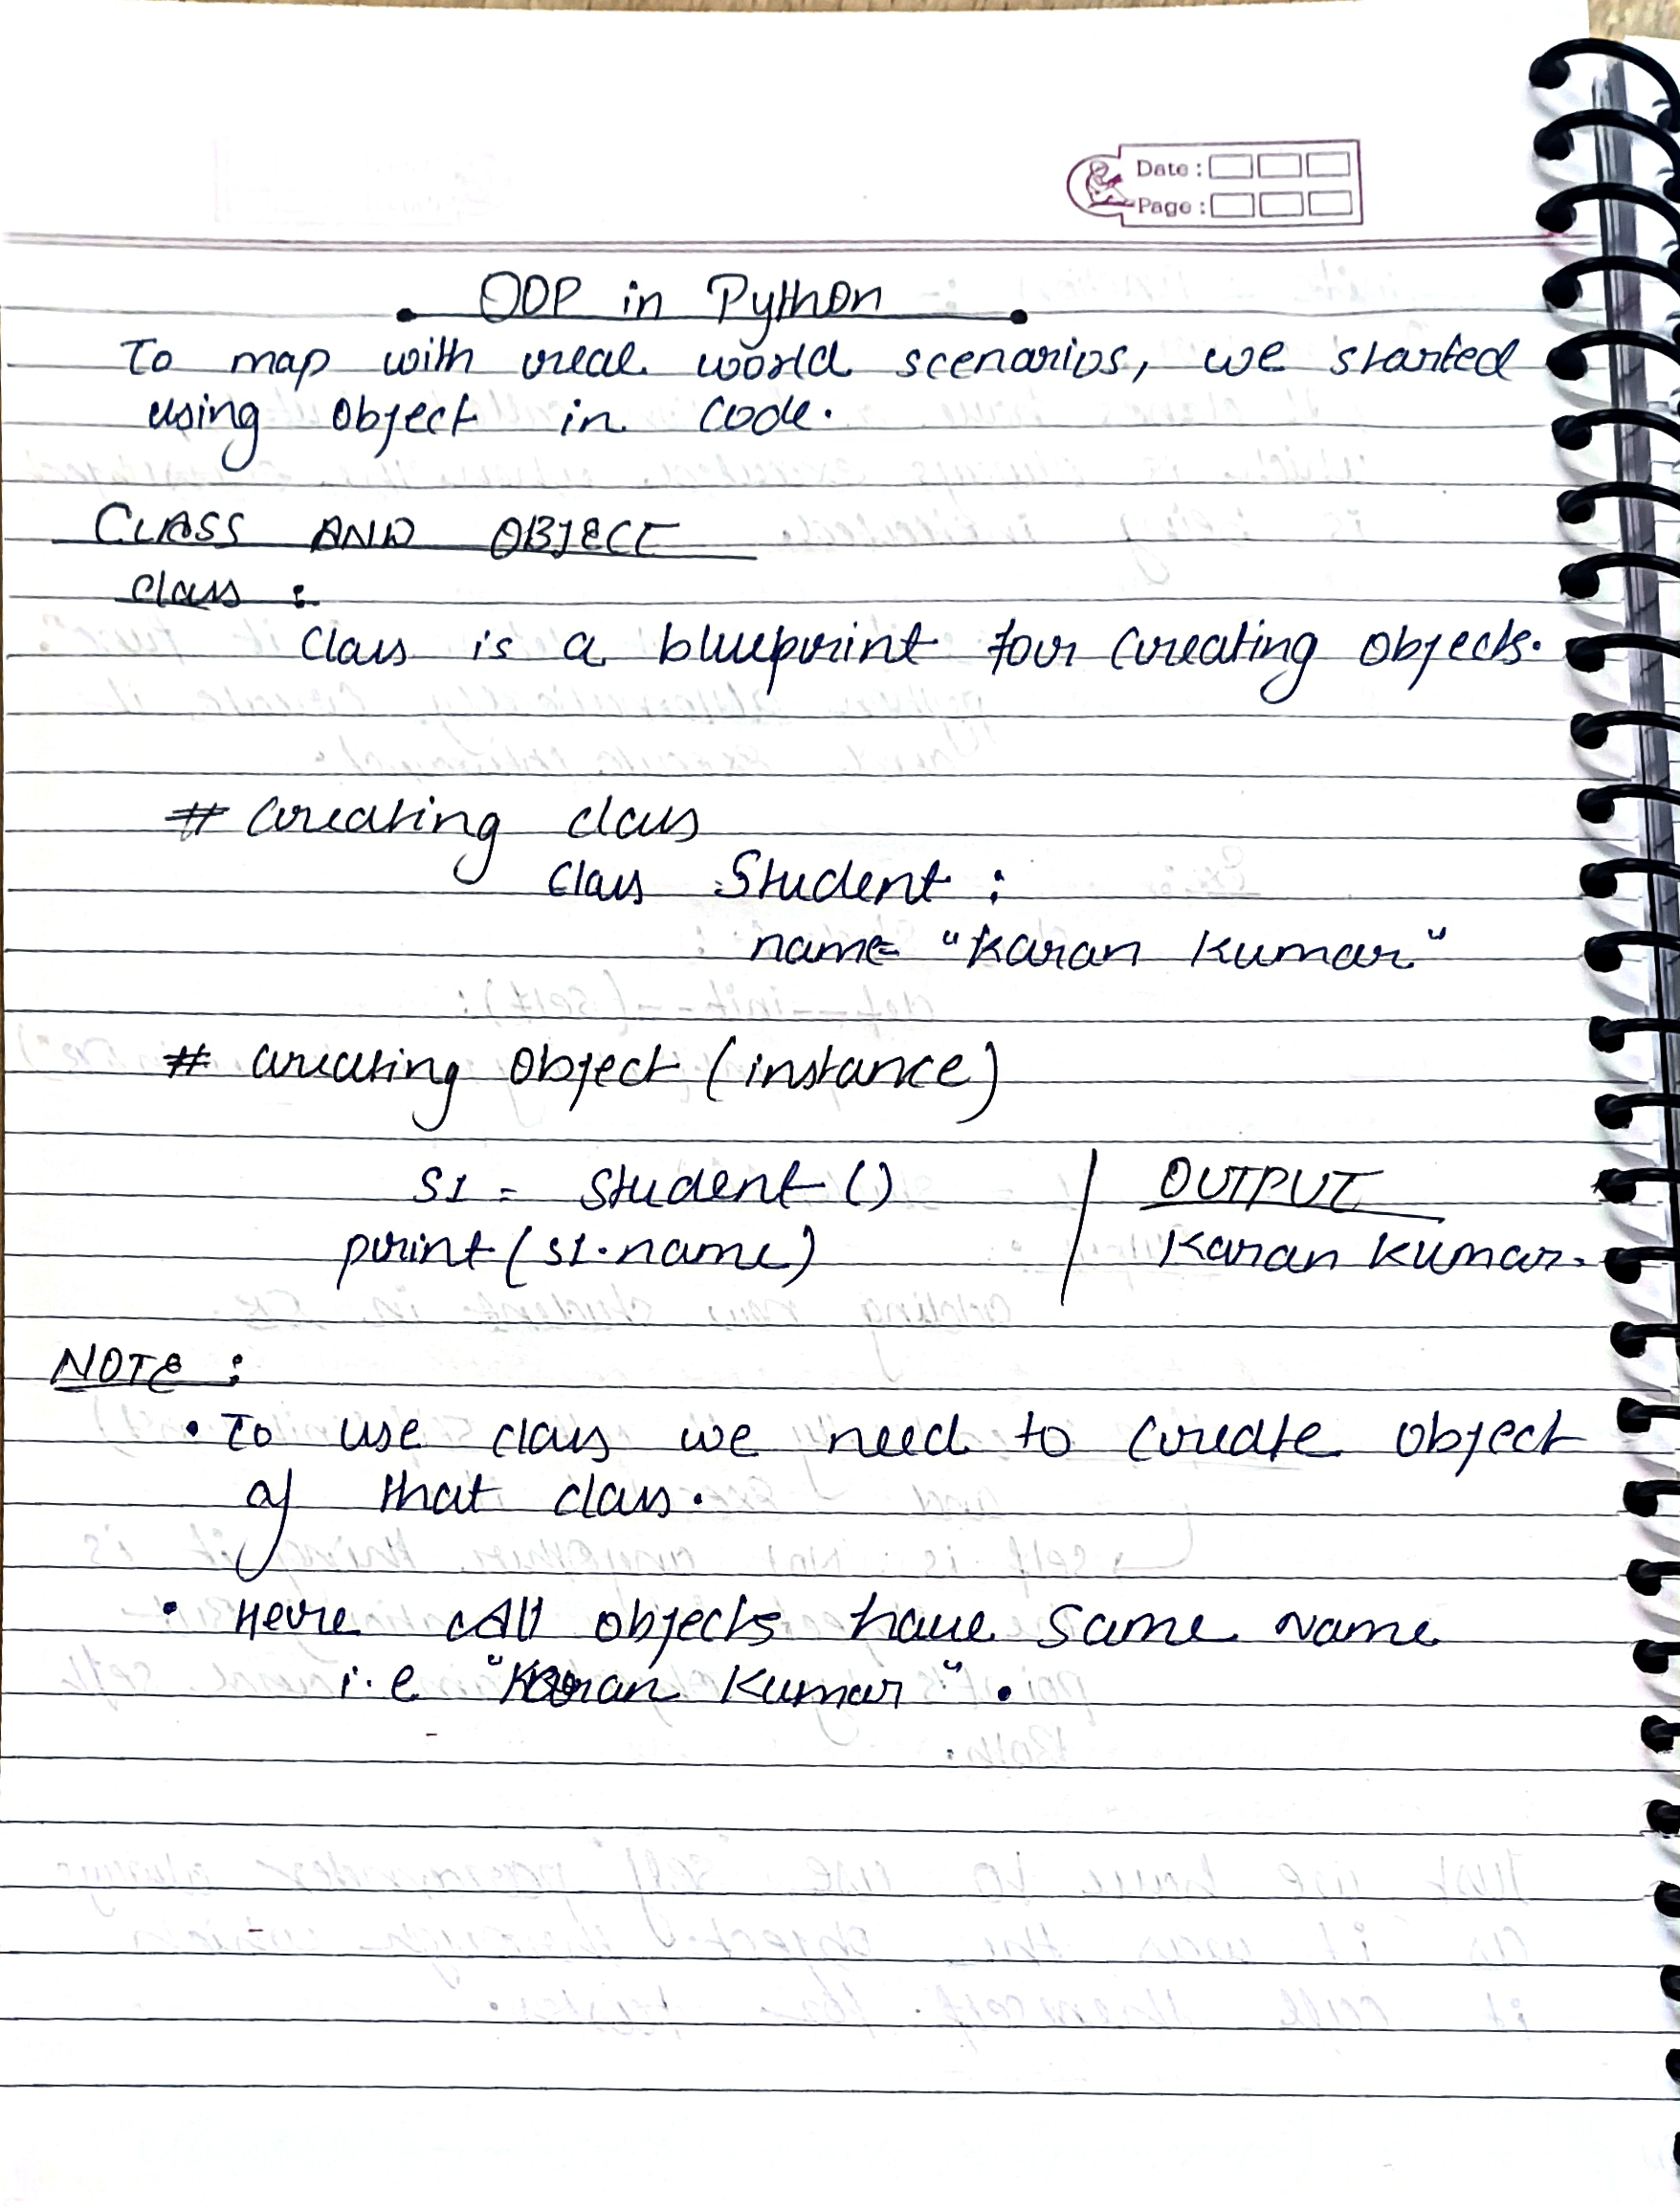 Date :
Page :
OOP in Python
To map with real world scenarios, we started
using object in code.
CLASS AND OBJECT
class :
Class is a blueprint for creating objects.
# Creating class
Class Student :
name= "Karan Kumar"
# creating object (instance)
S1 = Student ()
print (s1.name)
OUTPUT
Karan Kumar.
NOTE :
• To use class we need to create object
of that class.
• Here all objects have same name
i.e "Karan Kumar".